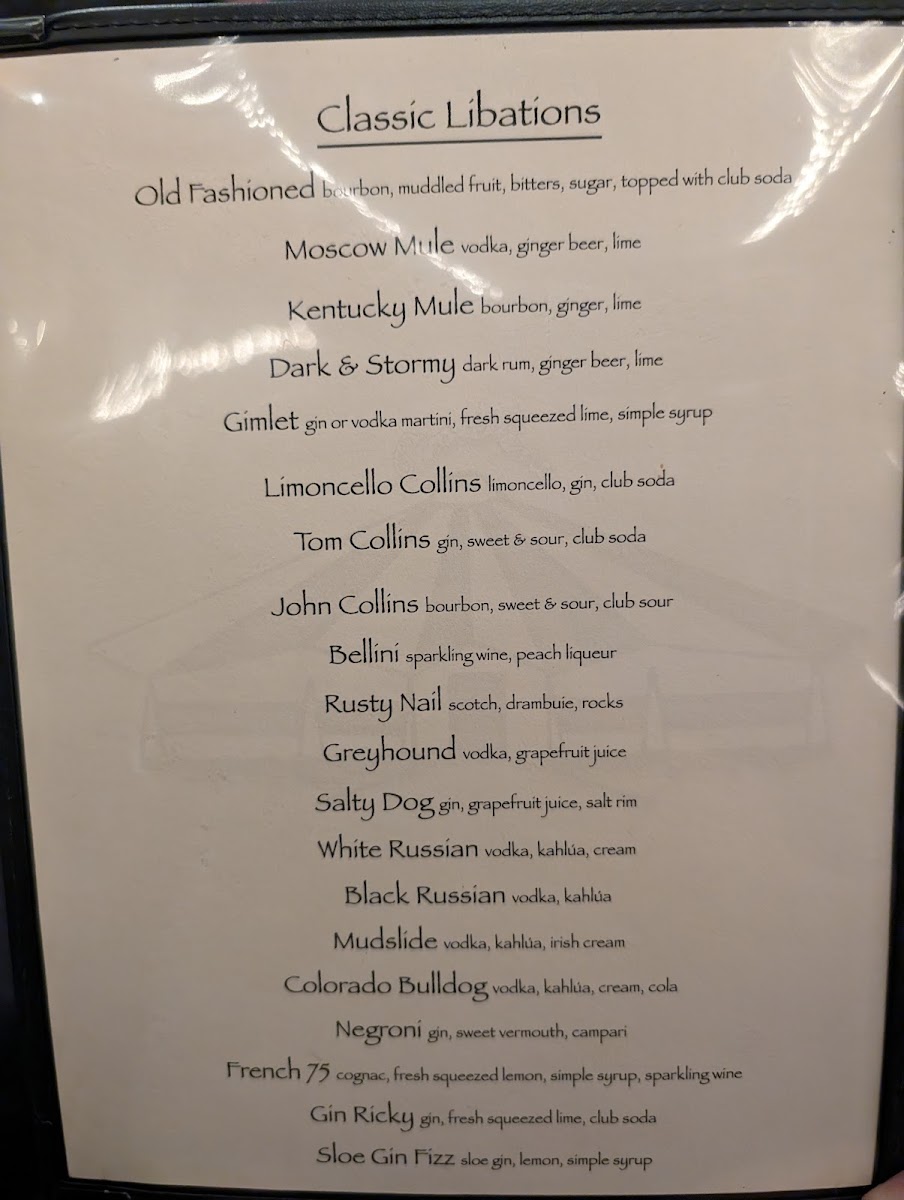 Classic Libations
Old Fashioned bourbon, muddled fruit, bitters, sugar, topped with club soda
Moscow Mule vodka, ginger beer, lime
Kentucky Mule bourbon, ginger, lime
Dark & Stormy dark rum, ginger beer, lime
Gimlet gin or vodka martini, fresh squeezed lime, simple syrup
Limoncello Collins limoncello, gin, club soda
Tom Collins gin, sweet & sour, club soda
John Collins bourbon, sweet & sour, club sour
Bellini sparkling wine, peach liqueur
Rusty Nail scotch, drambuie, rocks
Greyhound vodka, grapefruit juice
Salty Dog gin, grapefruit juice, salt rim
White Russian vodka, kahlúa, cream
Black Russian vodka, kahlúa
Mudslide vodka, kahlúa, irish cream
Colorado Bulldog vodka, kahlúa, cream, cola
Negroni gin, sweet vermouth, campari
French 75 cognac, fresh squeezed lemon, simple syrup, sparkling wine
Gin Ricky gin, fresh squeezed lime, club soda
Sloe Gin Fizz sloe gin, lemon, simple syrup